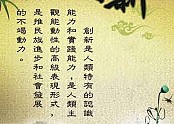 創新是人類特有的認識
能力和實踐能力，是人類主
觀能動性的高級表現形式，
是推民族進步和社會發展
的不竭動力。